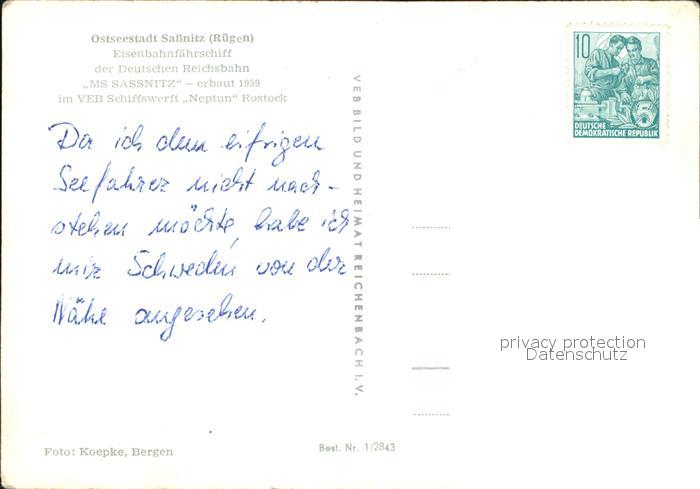 Ostseestadt Saßnitz (Rügen)
Eisenbahnfährschiff
der Deutschen Reichsbahn
„MS SASSNITZ" – erbaut 1959
im VEB Schiffswerft „Neptun" Rostock
Da ich dem eifrigen
Seefahrer nicht nach-
stehen möchte, habe ich
mir Schweden von der
Nähe angesehen.
VEB BILD UND HEIMAT REICHENBACH I. V.
10
DEUTSCHE
DEMOKRATISCHE REPUBLIK
5
privacy protection
Datenschutz
Foto: Koepke, Bergen
Best. Nr. 1/2843